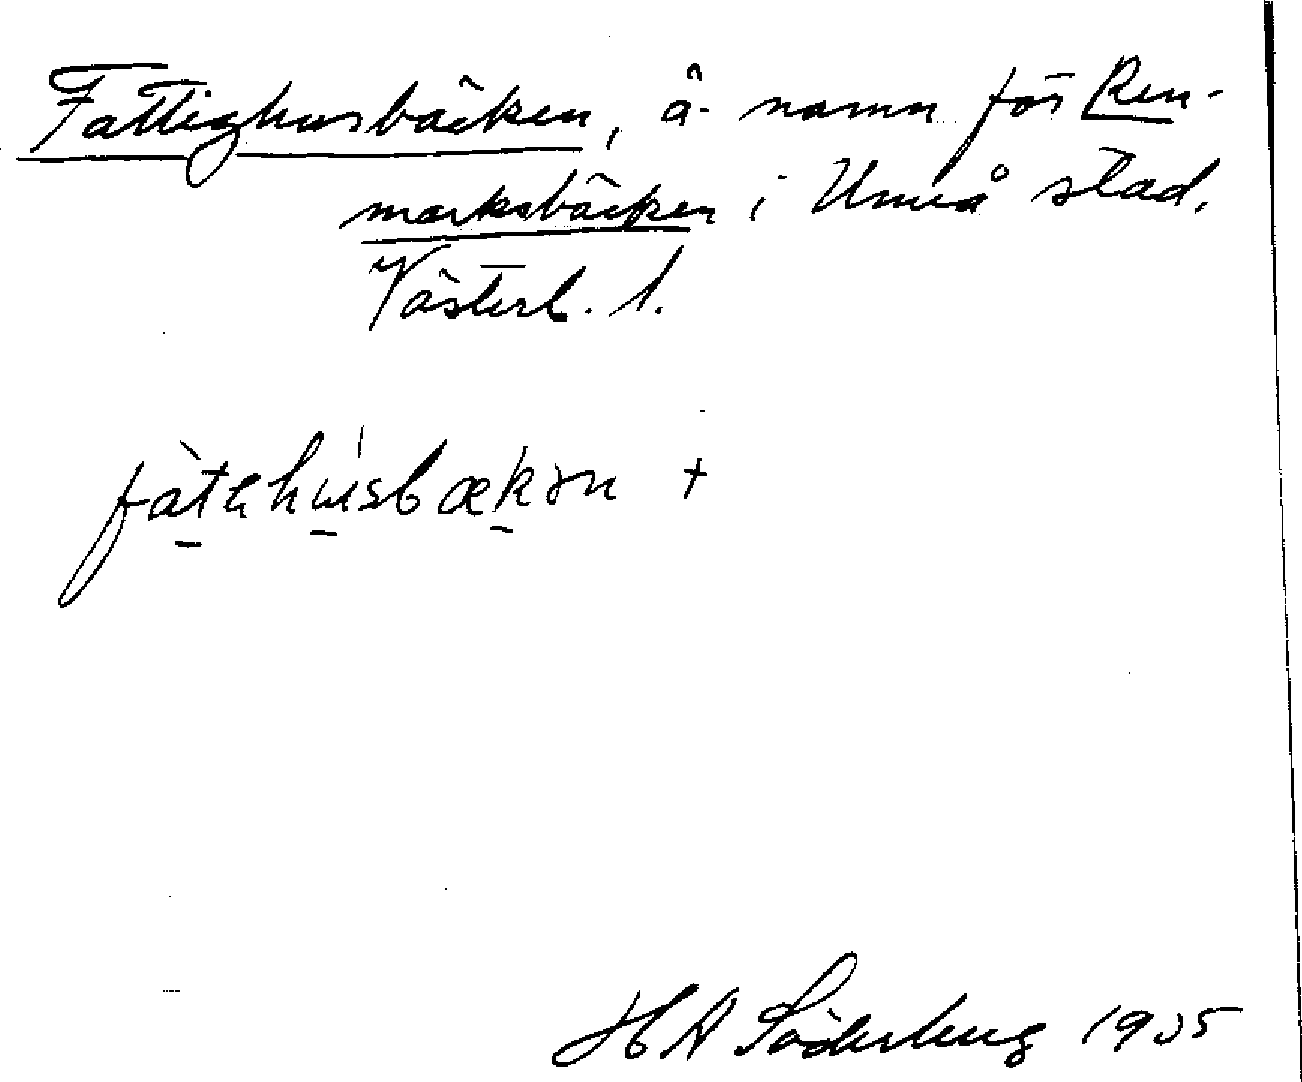 Fattighusbäcken, ä. namn för Ren-
marksbäcken i Umeå stad.
Västerb. l.
fàtehúsbækən +
H A Söderberg 1905